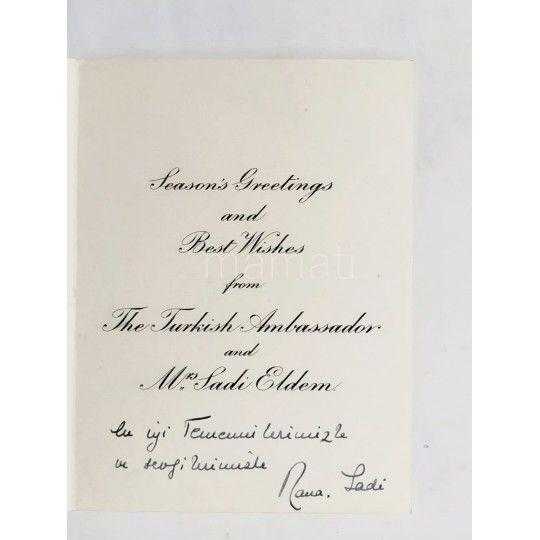 Season's Greetings
and
Best Wishes
mamati
from
The Turkish Ambassador
and
Mrs Sadi Eldem
En iyi Temennilerimizle
ve sevgilerimizle
Rana. Sadi